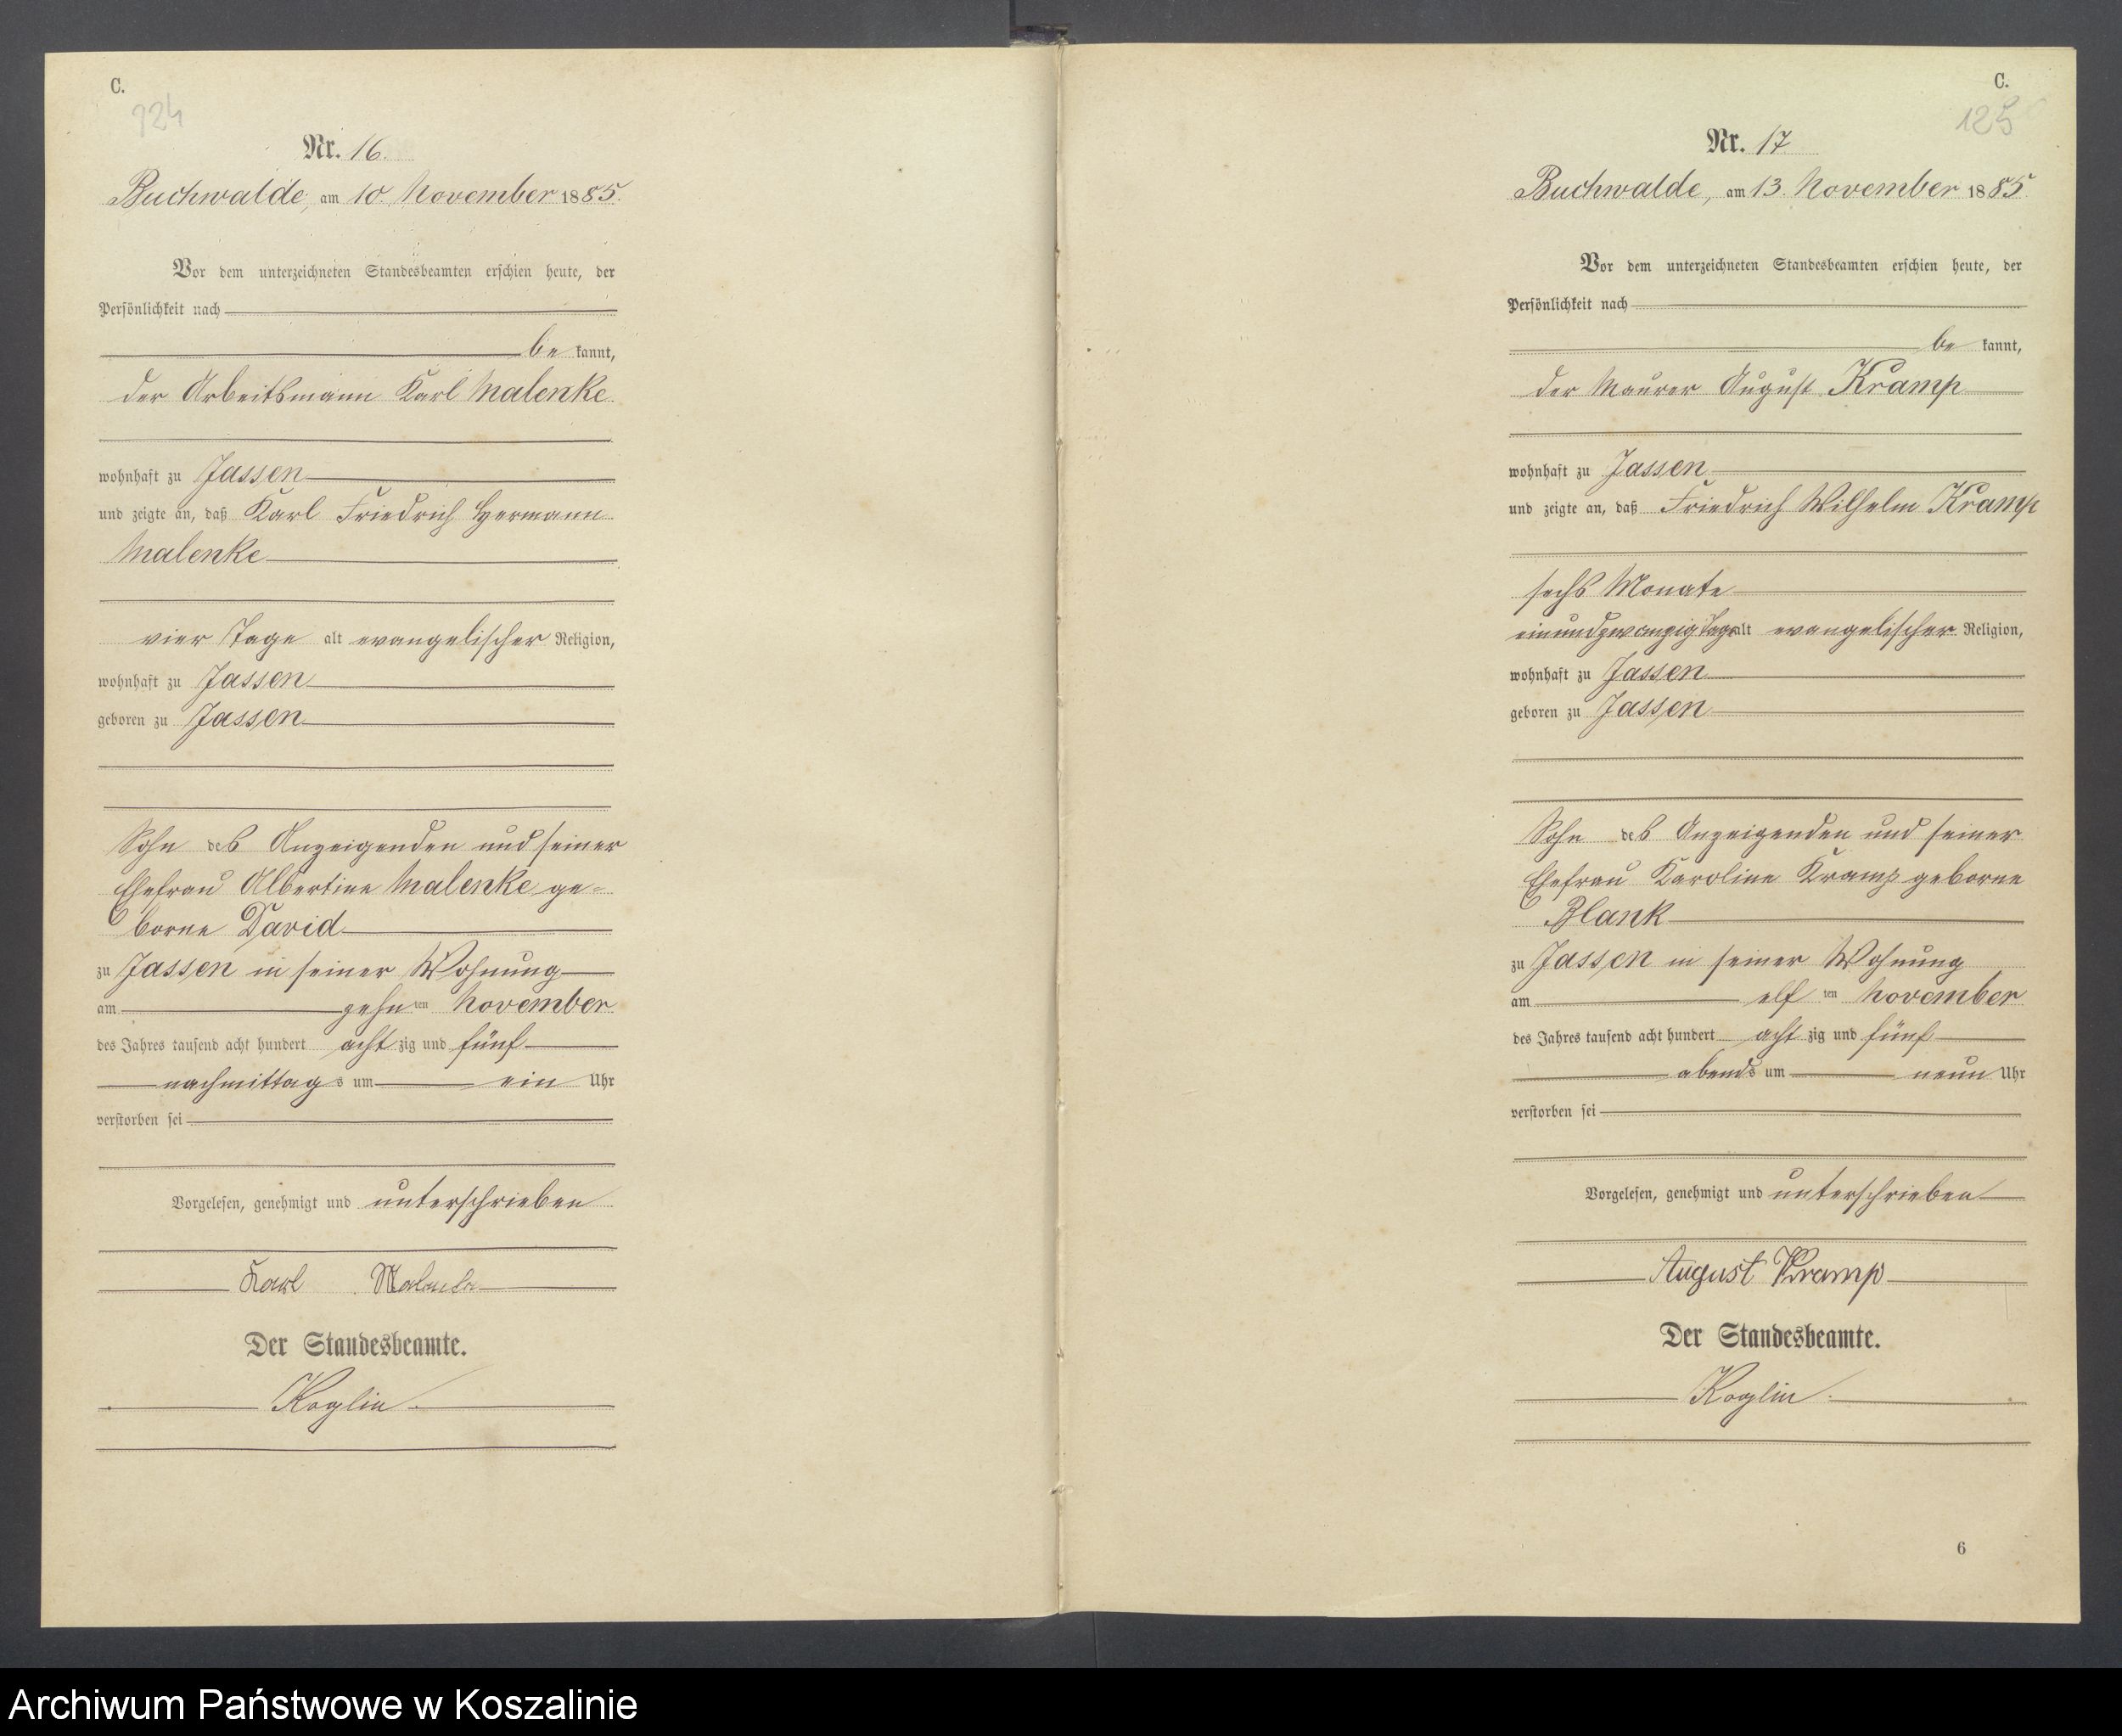 C.
124
Nr. 16.
Buchwalde, am 10. November 1885.
Vor dem unterzeichneten Standesbeamten erschien heute, der
Persönlichkeit nach
be kannt,
der Arbeitsmann Karl Malenke
wohnhaft zu Jassen
und zeigte an, daß Karl Friedrich Hermann
Malenke
vier Tage alt evangelischer Religion,
wohnhaft zu Jassen
geboren zu Jassen
Sohn des Anzeigenden und seiner
Ehefrau Albertine Malenke ge=
borne David
zu Jassen in seiner Wohnung
am zehn ten November
des Jahres tausend acht hundert acht zig und fünf
nachmittag s um ein Uhr
verstorben sei
Vorgelesen, genehmigt und unterschrieben
Karl
Der Standesbeamte.
Koglin.
C.
125
Nr. 17
Buchwalde, am 13. November 1885
Vor dem unterzeichneten Standesbeamten erschien heute, der
Persönlichkeit nach
be kannt,
der Maurer August Kramp
wohnhaft zu Jassen
und zeigte an, daß Friedrich Wilhelm Kramp
sechs Monate
einundzwanzig Tage alt evangelischer Religion,
wohnhaft zu Jassen
geboren zu Jassen
Sohn des Anzeigenden und seiner
Ehefrau Karoline Kramp geborne
Blank
zu Jassen in seiner Wohnung
am elf ten November
des Jahres tausend acht hundert acht zig und fünf
abends um neun Uhr
verstorben sei
Vorgelesen, genehmigt und unterschrieben
August Kramp
Der Standesbeamte.
Koglin.
6
Archiwum Państwowe w Koszalinie